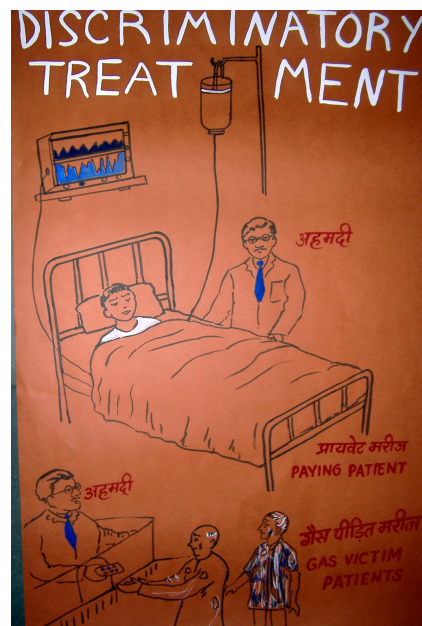 DISCRIMINATORY
TREATMENT
अहमदी
प्रायवेट मरीज
PAYING PATIENT
अहमदी
गैस पीड़ित मरीज
GAS VICTIM
PATIENTS